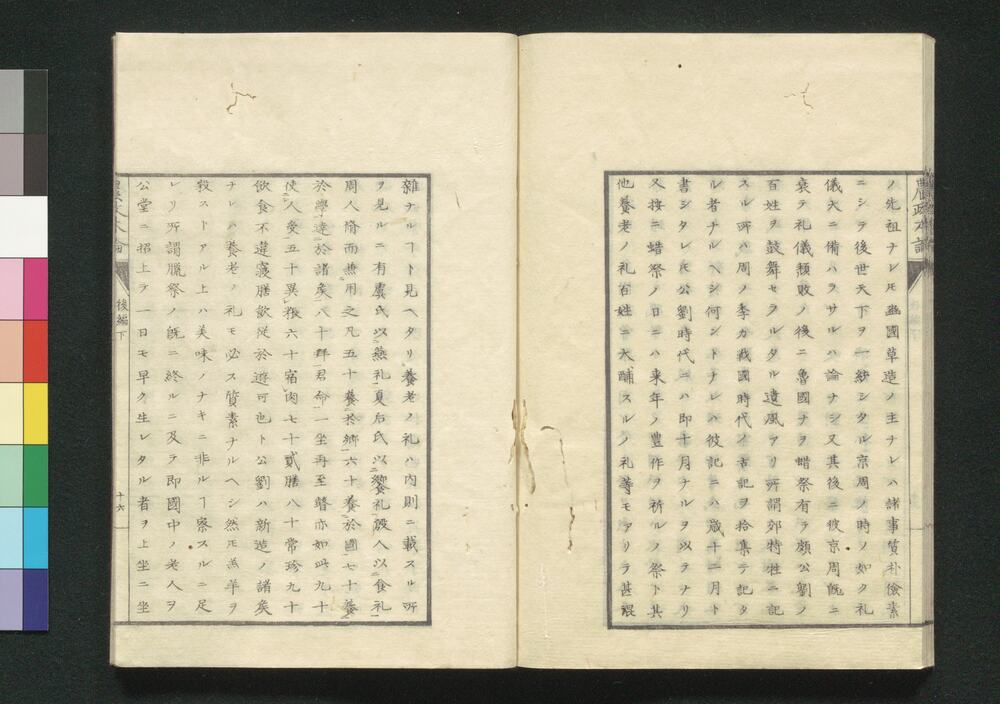 農政本論
ノ先祖ナレ𪜈豳國草造ノ主ナレハ諸事質朴儉素
ニシテ後世天下ヲ一統シタル京周ノ時ノ如ク礼
儀大ニ備ハラサルハ論ナシ又其後ニ彼京周既ニ
衰テ礼儀頽敗ノ後ニ魯國ナヲ蜡祭有テ頗公劉ノ
百姓ヲ鼓舞セラルタル遺風アリ所謂郊特牲ニ記
スル所ハ周ノ季カ戦國時代ノ古記ヲ拾集テ記タ
ル者ナルヘシ何ントナレハ彼記ニハ歳十二月ト
書シタレ𪜈公劉時代ニハ即十月ナルヲ以テナリ
又按ニ蜡祭ノ日ニハ来年ノ豊作ヲ祈ルノ祭ト其
他養老ノ礼百姓ニ大酺スルノ礼等モアリテ甚混
雜ナルヿト見ヘタリ養老ノ礼ハ内則ニ載スル所
ヲ見ルニ有虞氏以燕礼夏后氏以饗礼殷人以食礼
周人脩而兼用之凡五十養於郷六十養於國七十養
於學達於諸矦八十拜君命一坐再至瞽亦如此九十
使人受五十異粻六十宿肉七十貳膳八十常珍九十
飲食不違寢膳飲従於遊可也ト公劉ハ新造ノ諸矦
ナレハ養老ノ礼モ必ス質素ナルヘシ然𪜈羔羊ヲ
殺ストアル上ハ美味ノナキニ非ルヿ察スルニ足
レリ所謂臘祭ノ既ニ終ルニ及テ即國中ノ老人ヲ
公堂ニ招上テ一日モ早ク生レタル者ヲ上坐ニ坐
後編下
十六